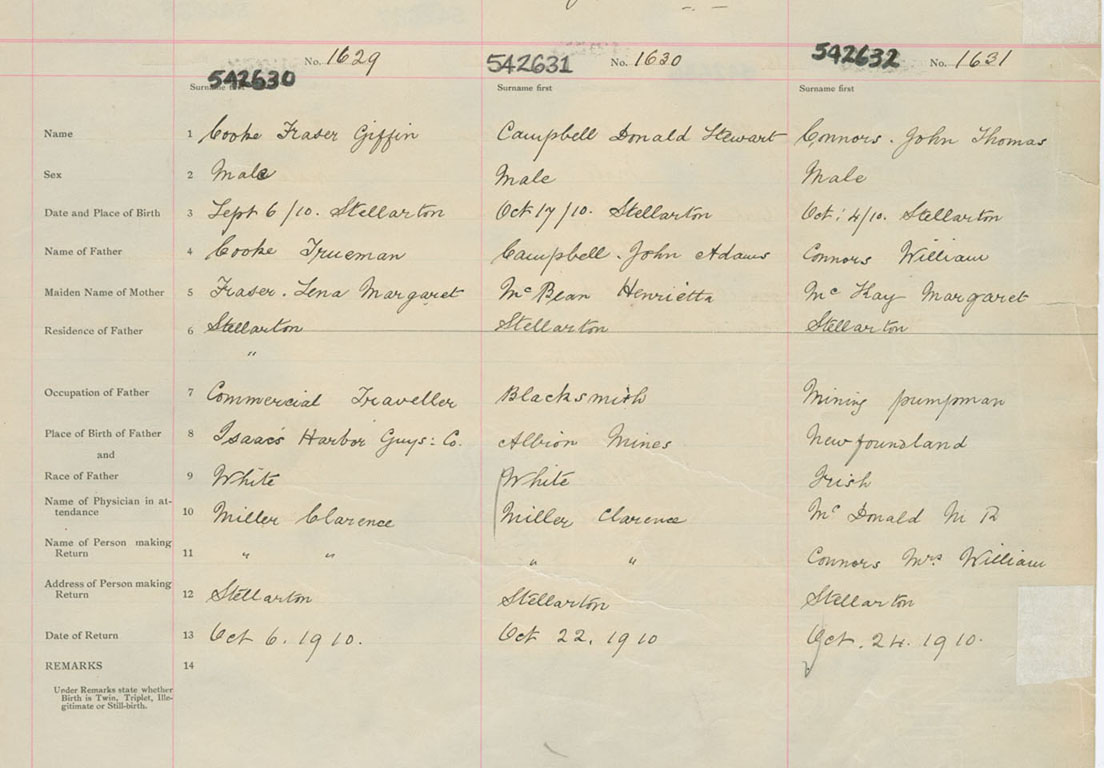 No. 1629 No. 1630 No. 1631
542630 542631 542632
Surname first Surname first Surname first
Name 1 Cooke Fraser Giffin Campbell Donald Stewart Connors. John Thomas
Sex 2 Male Male Male
Date and Place of Birth 3 Sept 6/10. Stellarton Oct 17/10. Stellarton Oct: 4/10. Stellarton
Name of Father 4 Cooke Trueman Campbell. John Adams Connors William
Maiden Name of Mother 5 Fraser. Lena Margaret McBean Henrietta McKay Margaret
Residence of Father 6 Stellarton Stellarton Stellarton
"
Occupation of Father 7 Commercial Traveller Blacksmith Mining pumpman
Place of Birth of Father 8 Isaacs Harbor Guys: Co. Albion Mines Newfoundland
and
Race of Father 9 White White Irish
Name of Physician in at-
tendance 10 Miller Clarence Miller Clarence McDonald M R
Name of Person making
Return 11 " " " " Connors Mrs William
Address of Person making
Return 12 Stellarton Stellarton Stellarton
Date of Return 13 Oct 6. 1910. Oct 22. 1910 Oct. 24. 1910.
REMARKS 14
Under Remarks state whether
Birth is Twin, Triplet, Ille-
gitimate or Still-birth.